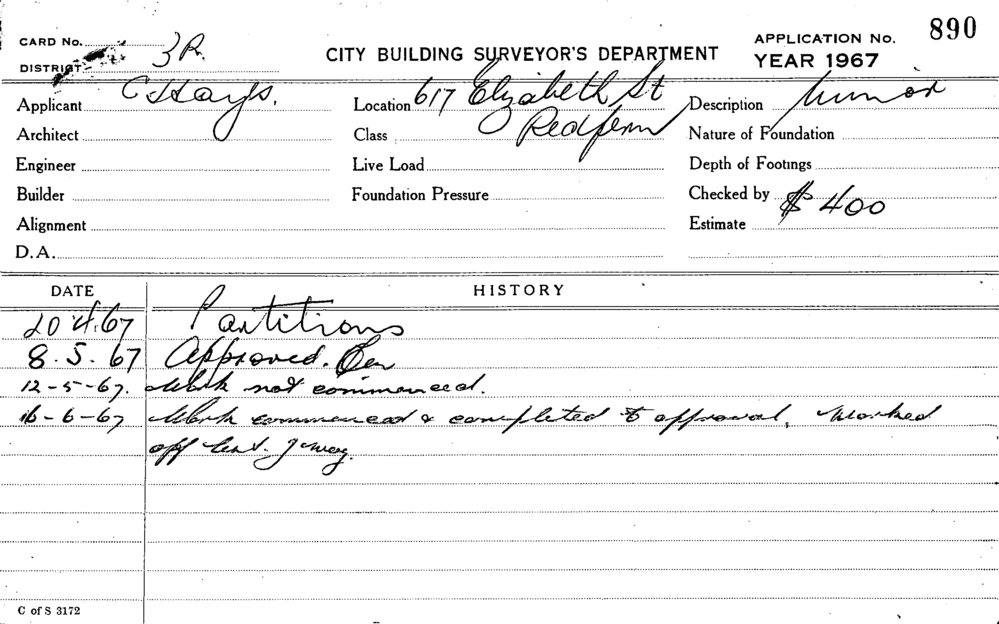 CARD No. 3R. CITY BUILDING SURVEYOR'S DEPARTMENT APPLICATION No. 890
DISTRICT YEAR 1967
Applicant C Hays. Location 617 Elizabeth St Description Minor
Architect Class Redfern Nature of Foundation
Engineer Live Load Depth of Footings
Builder Foundation Pressure Checked by
Alignment Estimate $400
D.A.
DATE HISTORY
20.4.67 Partitions
8.5.67 Approved.
12-5-67. Work not commenced.
16-6-67 Work commenced & completed to approval, Marked
off
C of S 3172